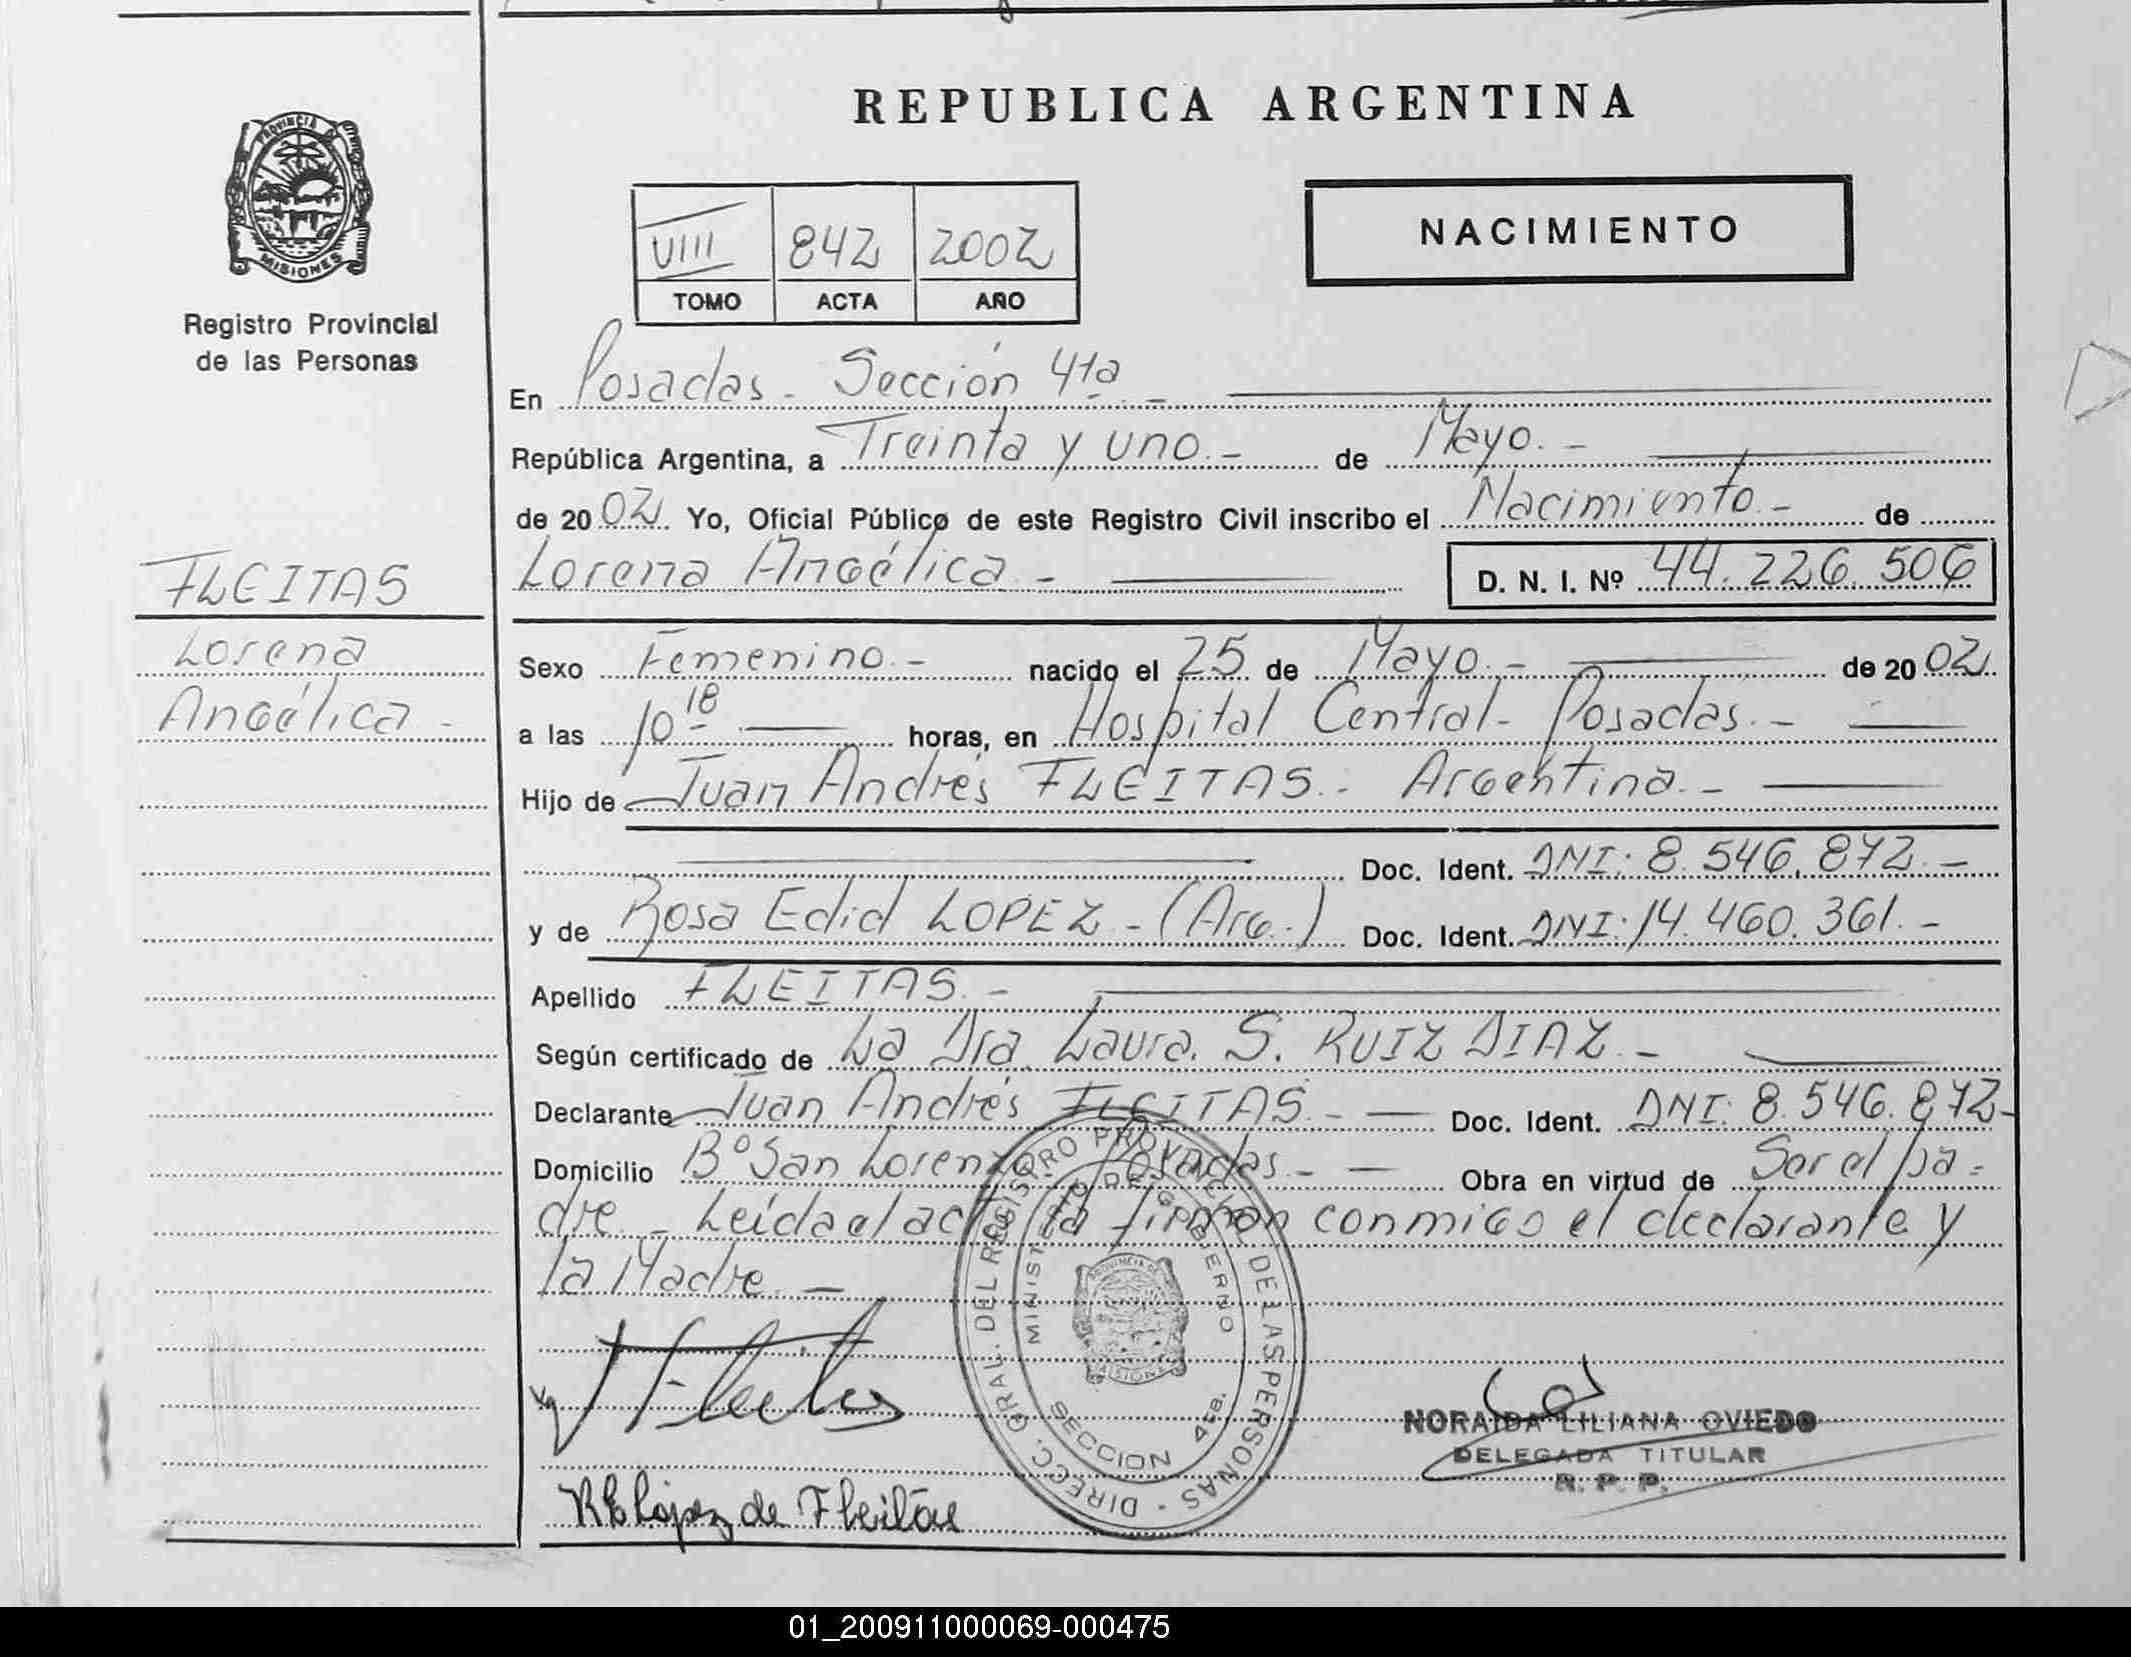 REPUBLICA ARGENTINA
PROVINCIA DE
MISIONES
Registro Provincial
de las Personas
NACIMIENTO
VIII 842 2002
TOMO ACTA AÑO
En Posadas - Sección 4ta. -
República Argentina, a Treinta y uno. - de Mayo. -
de 2002 Yo, Oficial Público de este Registro Civil inscribo el Nacimiento. - de
Lorena Angélica - D. N. I. Nº 44.226.506
FLEITAS
Lorena
Angélica -
Sexo Femenino. - nacido el 25 de Mayo. - de 2002.
a las 10 18 horas, en Hospital Central - Posadas. -
Hijo de Juan Andrés FLEITAS. - Argentina. -
Doc. Ident. DNI: 8.546.872. -
y de Rosa Edid LOPEZ - (Arg.) Doc. Ident. DNI: 14.460.361. -
Apellido FLEITAS. -
Según certificado de La Dra. Laura. S. RUIZ DIAZ. -
Declarante Juan Andrés FLEITAS. - Doc. Ident. DNI: 8.546.872-
Domicilio Bº San Lorenzo - Posadas. - Obra en virtud de Ser el pa-
dre. - Leida el acta la firman conmigo el declarante y
la Madre. -
DIRECC. GRAL. DEL REGISTRO PROVINCIAL DE LAS PERSONAS
MINISTERIO DE GOBIERNO
PROVINCIA DE
MISIONES
SECCION 4ta.
J Fleitas
NORAIDA LILIANA OVIEDO
DELEGADA TITULAR
R. P. P.
RE López de Fleitas
01_200911000069-000475